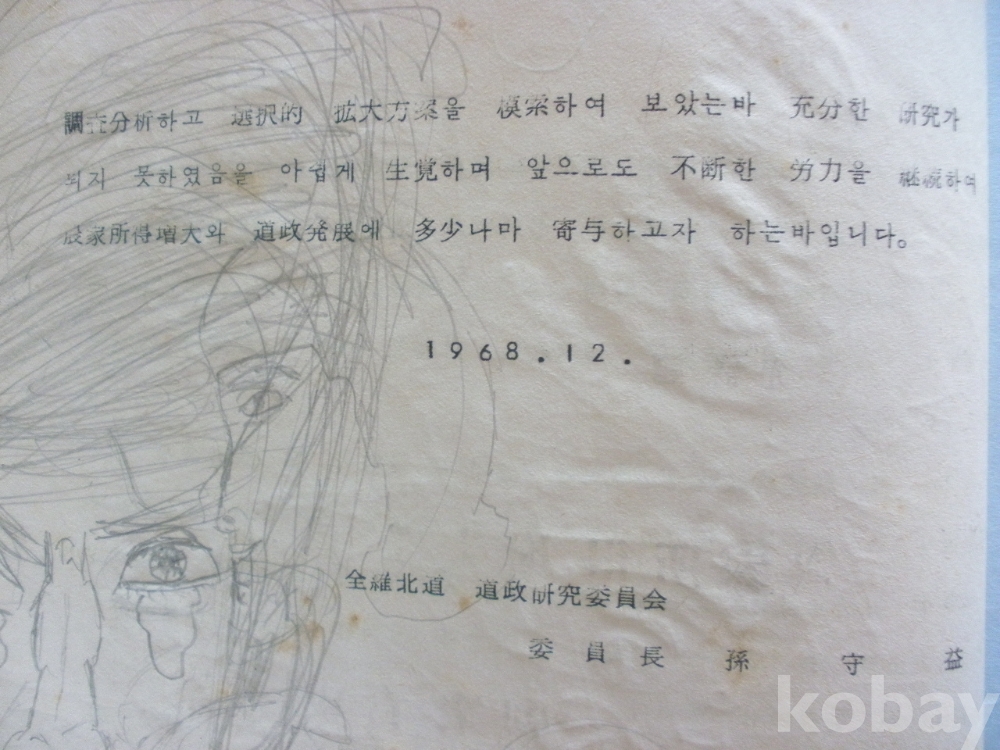 調査分析하고 選択的 拡大方案을 模索하여 보았는바 充分한 研究가
되지 못하였음을 아쉽게 生覚하며 앞으로도 不断한 労力을 継続하여
農家所得増大와 道政発展에 多少나마 寄与하고자 하는바입니다。
1968.12.
全羅北道 道政研究委員会
委員長 孫守益
kobay